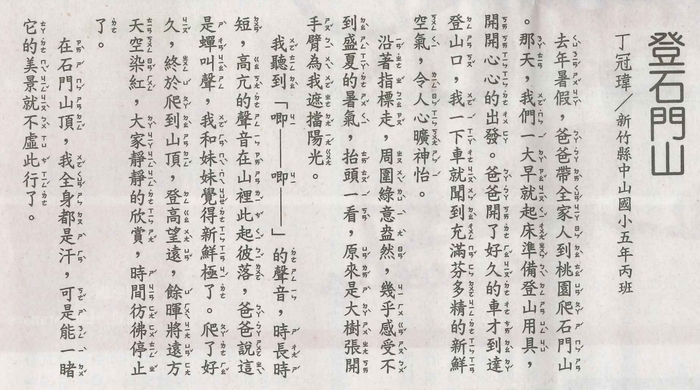 登石門山
丁冠瑋／新竹縣中山國小五年丙班
去年暑假，爸爸帶全家人到桃園爬石門山
。那天，我們一大早就起床準備登山用具，
開開心心的出發。爸爸開了好久的車才到達
登山口，我一下車就聞到充滿芬多精的新鮮
空氣，令人心曠神怡。
沿著指標走，周圍綠意盎然，幾乎感受不
到盛夏的暑氣，抬頭一看，原來是大樹張開
手臂為我遮擋陽光。
我聽到「唧——唧——」的聲音，時長時
短，高亢的聲音在山裡此起彼落，爸爸說這
是蟬叫聲，我和妹妹覺得新鮮極了。爬了好
久，終於爬到山頂，登高望遠，餘暉將遠方
天空染紅，大家靜靜的欣賞，時間彷彿停止
了。
在石門山頂，我全身都是汗，可是能一睹
它的美景就不虛此行了。